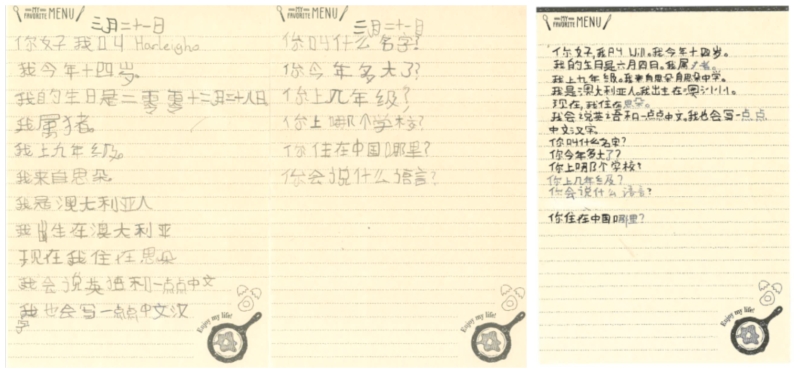 MY FAVORITE MENU
三月二十一日
你好 我叫 Harleigh。
我今年十四岁。
我的生日是二零零
我属猪。
我上九年级。
我来自思朵
我是澳大利亚人
我出生在澳大利亚
现在我住在思朵
我会说英语和一点点中文
我也会写一点点中文汉
字
Enjoy my life!
MY FAVORITE MENU
三月二十一日
你叫什么名字?
你今年多大了?
你上九年级?
你上哪个学校?
你住在中国哪里?
你会说什么语言?
Enjoy my life!
MY FAVORITE MENU
你好,我叫 Will。我今年十四岁。
我的生日是六月四日。我属
我上九年级。
我是澳大利亚人。我出生在澳
现在,我住在思朵。
我会说英语和一点点中文,我也会写一点点
中文汉字
你叫什么名字?
你今年多大了?
你上哪个学校?
你上几年级?
你会说什么语言?
你住在中国哪里?
Enjoy my life!